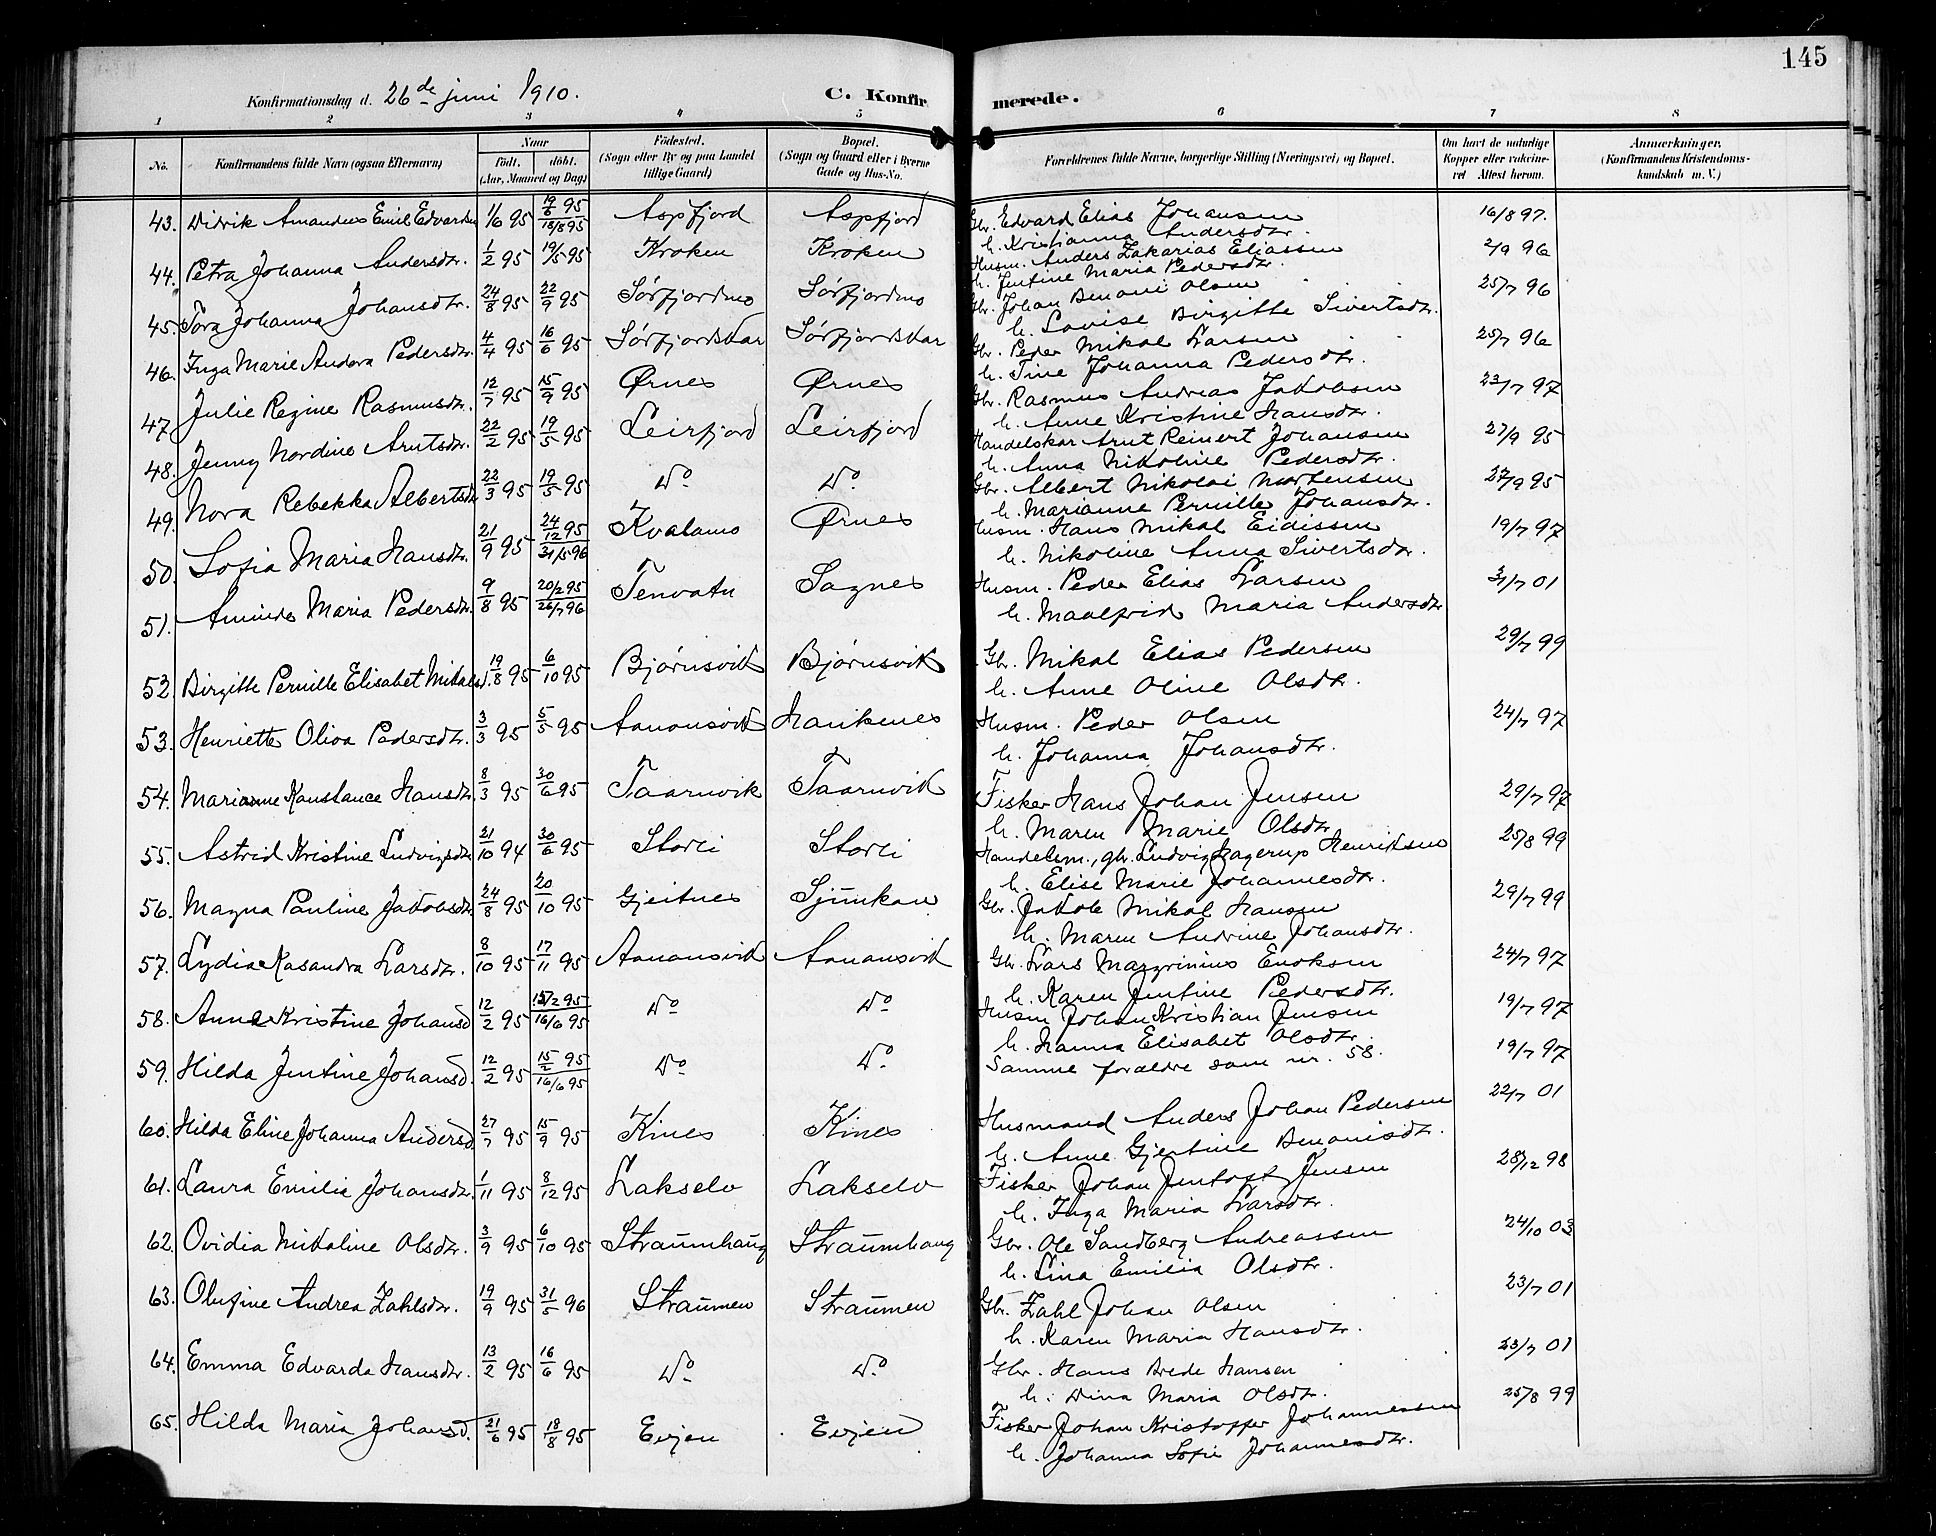 145
Konfirmationsdag d. 26de juni 1910.
C. Konfirmerede.
1 2 3 4 5 6 7 8
No. Konfirmandens fulde Navn (ogsaa Efternavn) Naar født, døbt. (Aar, Maaned og Dag) Fødested. (Sogn eller By og paa Landet tillige Gaard) Bopæl. (Sogn og Gaard eller i Byerne Gade og Hus-No. Forældrenes fulde Navne, borgerlige Stilling (Næringsvei) og Bopæl. Om havt de naturlige Kopper eller vaccineret Attest herom. Anmærkninger. (Konfirmandens Kristendomskundskab m. V.)
43. Didrik Amandus Emil Edvardsen 1/6 95 19/6 95 18/8 95 Aspfjord Aspfjord Gbr. Edvard Elias Johansen 16/8 97.
h. Kristianna Andersdtr.
44. Petra Johanna Andersdtr. 1/2 95 19/5 95 Kroken Kroken Husm. Anders Zakarias Eliassen 2/9 96
h. Jentine Maria Pedersdtr.
45. Tora Johanna Johansdtr. 24/8 95 22/9 95 Sörfjordmo Sörfjordmo Gbr. Johan Benoni Olsen 25/7 96
h. Lovise Birgitte Sivertsdtr.
46. Inga Marie Andora Pedersdtr. 4/4 95 16/6 95 Sörfjordskar Sörfjordskar Gbr. Peder Mikal Larsen 25/7 96
h. Tine Johanna Pedersdtr.
47. Julie Regine Rasmusdtr. 12/7 95 15/9 95 Ørnes Ørnes Gbr. Rasmus Andreas Jakobsen 23/7 97
h. Anne Kristine Hansdtr.
48. Jenny Nordine Arntsdtr. 22/2 95 19/5 95 Leirfjord Leirfjord Handelskar Arnt Reinert Johansen 27/9 95
h. Anna Nikoline Pedersdtr.
49. Nora Rebekka Albertsdtr. 22/3 95 19/5 95 Do. Do. Gbr. Albert Nikolai Mortensen 27/9 95
h. Marianne Pernille Johansdtr.
50. Sofia Maria Hansdtr. 21/9 95 24/12 95 31/5 96 Kvalamo Ørnes Husm. Hans Mikal Eidissen 19/7 97
h. Nikoline Anna Sivertsdtr.
51. Maria Pedersdtr. 9/8 95 20/2 95 26/7 96 Tenvatn Sagnes Husm. Peder Elias Larsen 31/7 01
h. Maalfrid Maria Andersdtr
52. Birgitte Pernille Elisabet Mikalsd. 19/8 95 6/10 95 Bjørnsvik Bjørnsvik Gbr. Mikal Elias Pedersen 29/7 99
h. Anne Oline Olsdtr.
53. Henriette Oliva Pedersdtr. 3/3 95 5/5 95 Aanansvik Haukenes Husm. Peder Olsen 24/7 97
h. Johanna Johansdtr.
54. Marianne Konstance Hansdtr. 8/3 95 30/6 95 Taarnvik Taarnvik Fisker Hans Johan Jensen 29/7 97
h. Maren Marie Olsdtr.
55. Astrid Kristine Ludvigsdtr 21/10 94 30/6 95 Storli Storli Handelsm., gbr. Ludvig Hagerup Henriksen 25/8 99
h. Elise Marie Johannesdtr.
56. Magna Pauline Jakobsdtr. 24/8 95 20/10 95 Gjeitnes Sjünkan Gbr. Jakob Mikal Hansen 29/7 99
h. Maren Andrine Johansdtr.
57. Lydia Kasandra Larsdtr. 8/10 95 17/11 95 Aanansvik Aanansvik Gbr. Lars Margrinius Enoksen 24/7 97
h. Karen Jentine Pedersdtr.
58. Anne Kristine Johansd 12/2 95 15/2 95 16/6 95 Do Do. Husm Johan Kristian Jensen 19/7 97
h. Hanna Elisabet Olsdtr.
59. Hilda Jentine Johansd. 12/2 95 15/2 95 16/6 95 Do. Do. Samme forældre som nr. 58. 19/7 97
60. Hilda Eline Johanna Andersd. 27/7 95 15/9 95 Kines Kines Husmand Anders Johan Pedersen 22/7 01
h. Anne Gjertine Benonisdtr.
61. Laura Emilie Johansdtr. 1/11 95 8/12 95 Lakselv Lakselv Fisker Johan Jentoft Jensen 28/12 98
h. Inga Maria Larsdtr.
62. Ovidia Nikoline Olsdtr. 3/9 95 6/10 95 Straümhaüg Straümhaug Gbr. Ole Sandberg Andreassen 24/10 03
h. Lina Emilia Olsdtr.
63. Olufine Andrea Zahlsdtr. 19/9 95 31/5 96 Straümen Straümen Gbr. Zahl Johan Olsen 23/7 01
h. Karen Maria Hansdtr.
64. Emma Edvarda Hansdtr. 13/2 95 16/6 95 Do. Do. Gbr. Hans Brede Hansen 23/7 01
h. Dina Maria Olsdtr.
65. Hilda Maria Johansd. 21/6 95 18/8 95 Evjen Evjen Fisker Johan Kristoffer Johannessen 25/8 99
h. Johanna Sofie Johannesdtr.